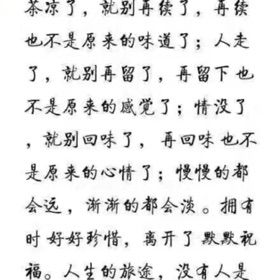 茶凉了，就别再续了，再续
也不是原来的味道了；人走
了，就别再留了，再留下也
不是原来的感觉了；情没了
，就别回味了，再回味也不
是原来的心情了；慢慢的都
会远，渐渐的都会淡。拥有
时好好珍惜，离开了默默祝
福。人生的旅途，没有人是